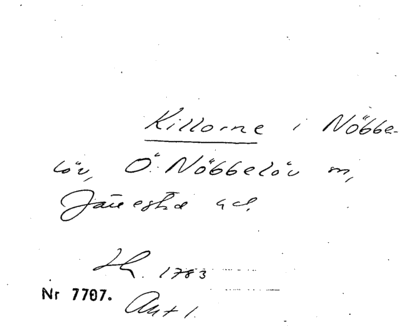 Killorne i Nöbbe-
löv, Ö. Nöbbelöv m,
Järestad hd.
1783
Nr 7707.